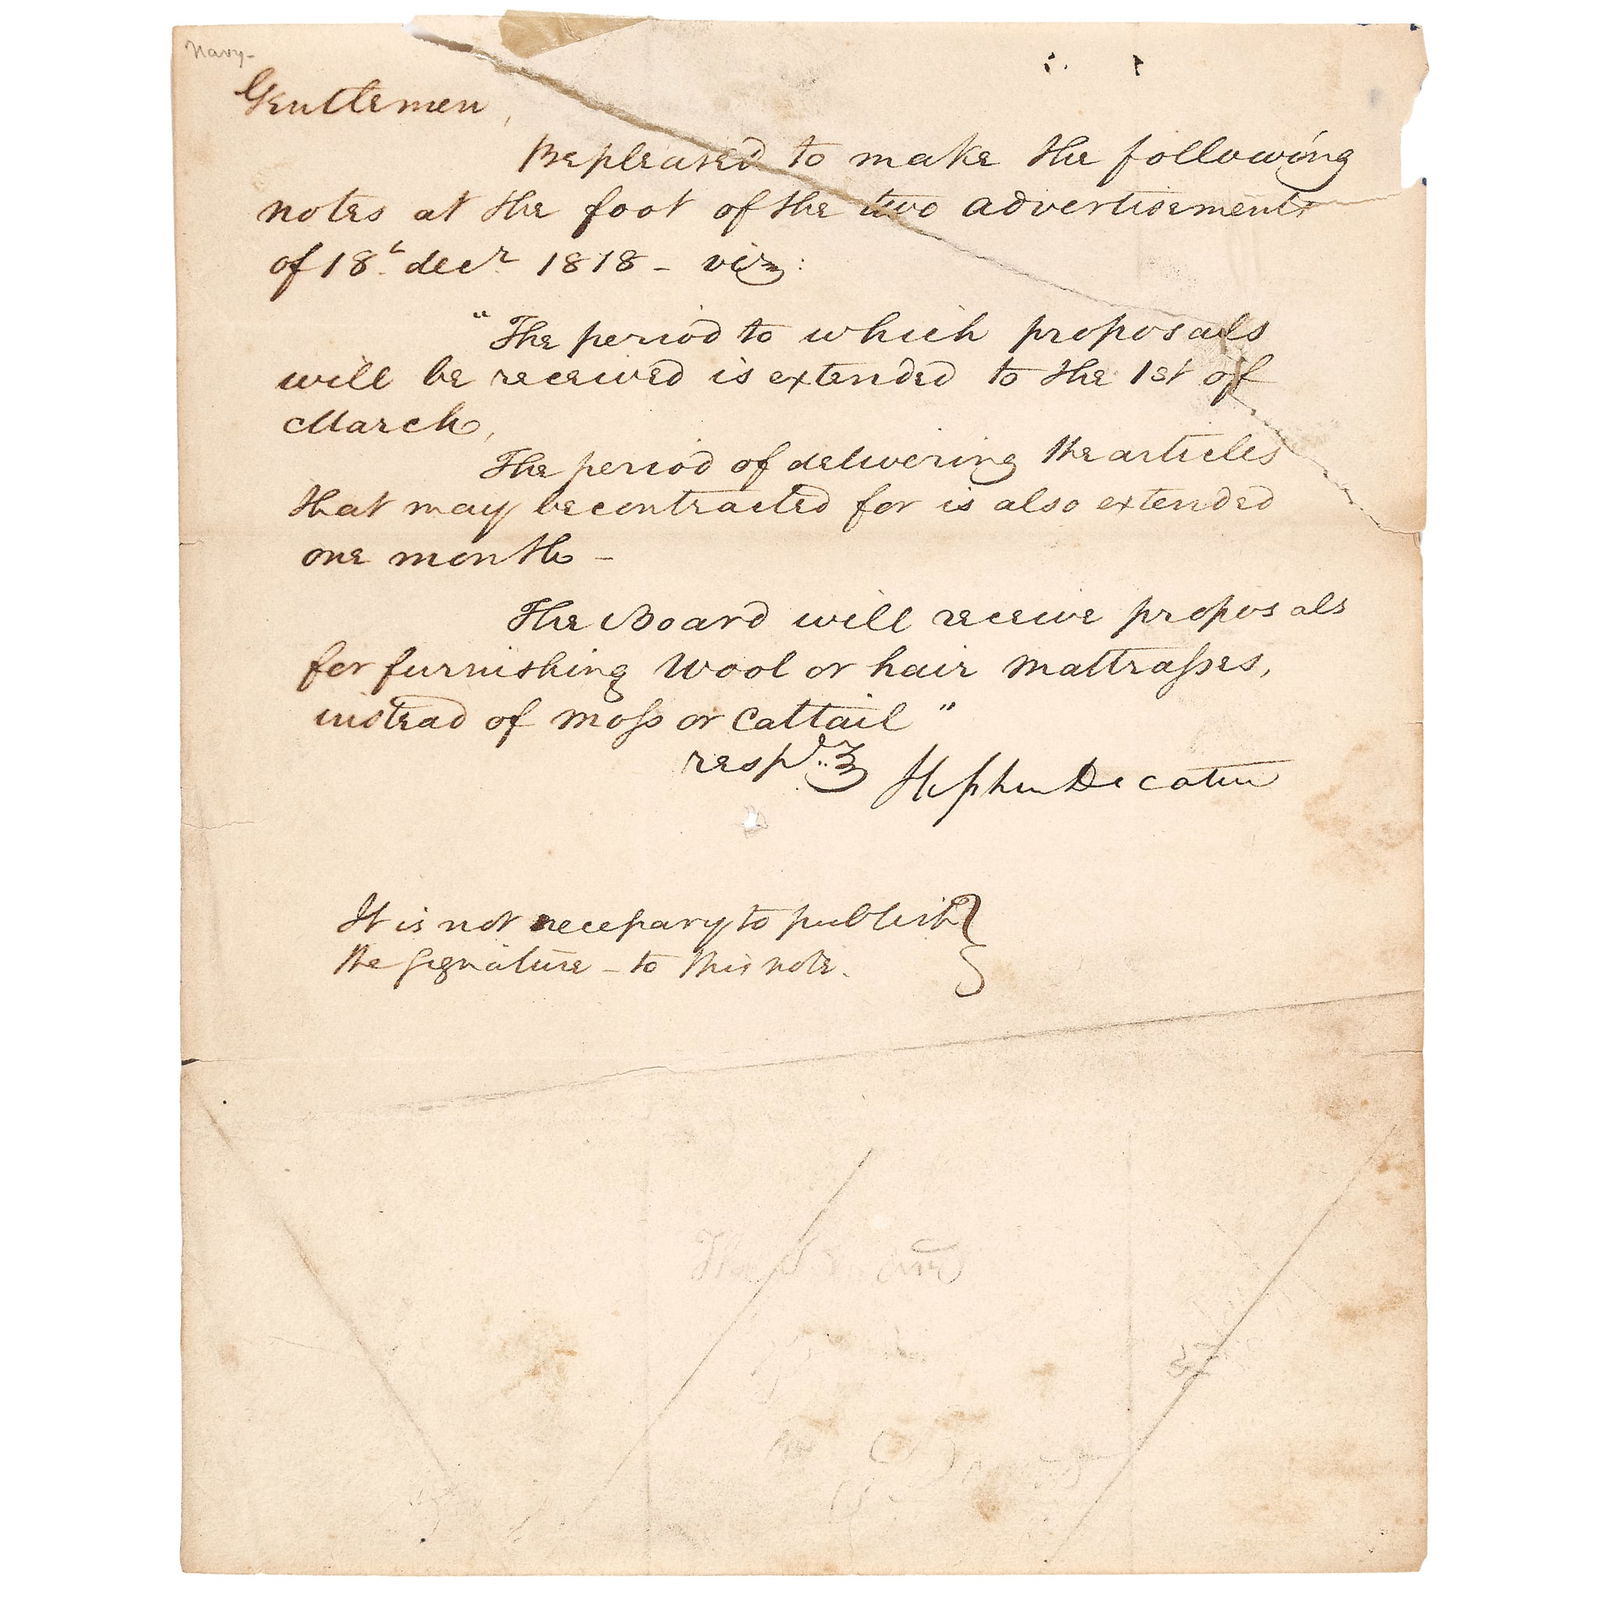 Navy-
Gentlemen,
Be pleased to make the following
notes at the foot of the two advertisements
of 18th decr 1818 - viz:
"The period to which proposals
will be received is extended to the 1st of
March,
The period of delivering the articles
that may be contracted for is also extended
one month -
The Board will receive proposals
for furnishing wool or hair mattrasses,
instead of moss or cattail"
respy Stephen Decatur
It is not necessary to publish
the signature - to this note.